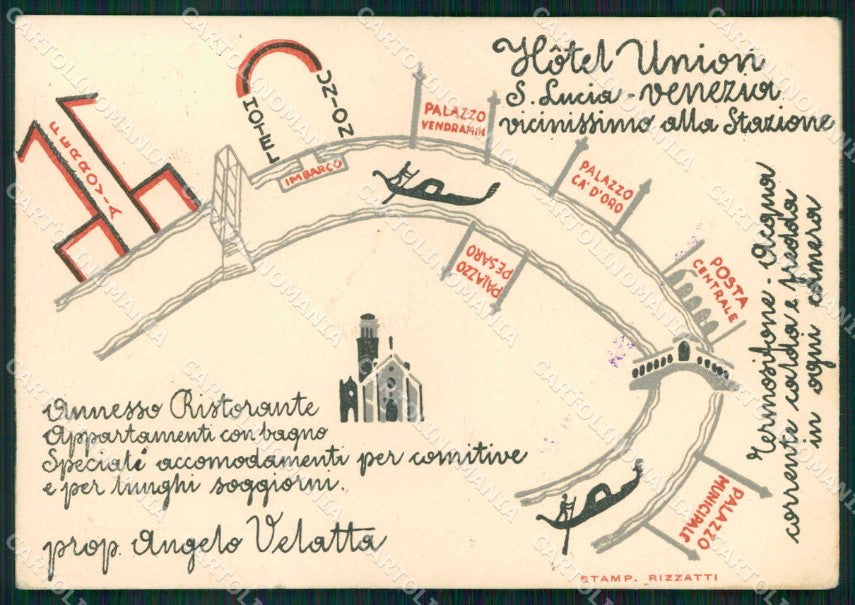 Hôtel Union
S. Lucia - VENEZIA
vicinissimo alla Stazione
FERROVIA
HOTEL UNION
IMBARCO
PALAZZO
VENDRAMIN
PALAZZO
CA' D'ORO
PALAZZO
PESARO
POSTA
CENTRALE
Termosifone - Acqua
corrente calda e fredda
in ogni camera
Annesso Ristorante
Appartamenti con bagno
Speciali accomodamenti per comitive
e per lunghi soggiorni.
prop. Angelo Velatta
PALAZZO
MUNICIPALE
STAMP. RIZZATTI
CARTOLINOMANIA